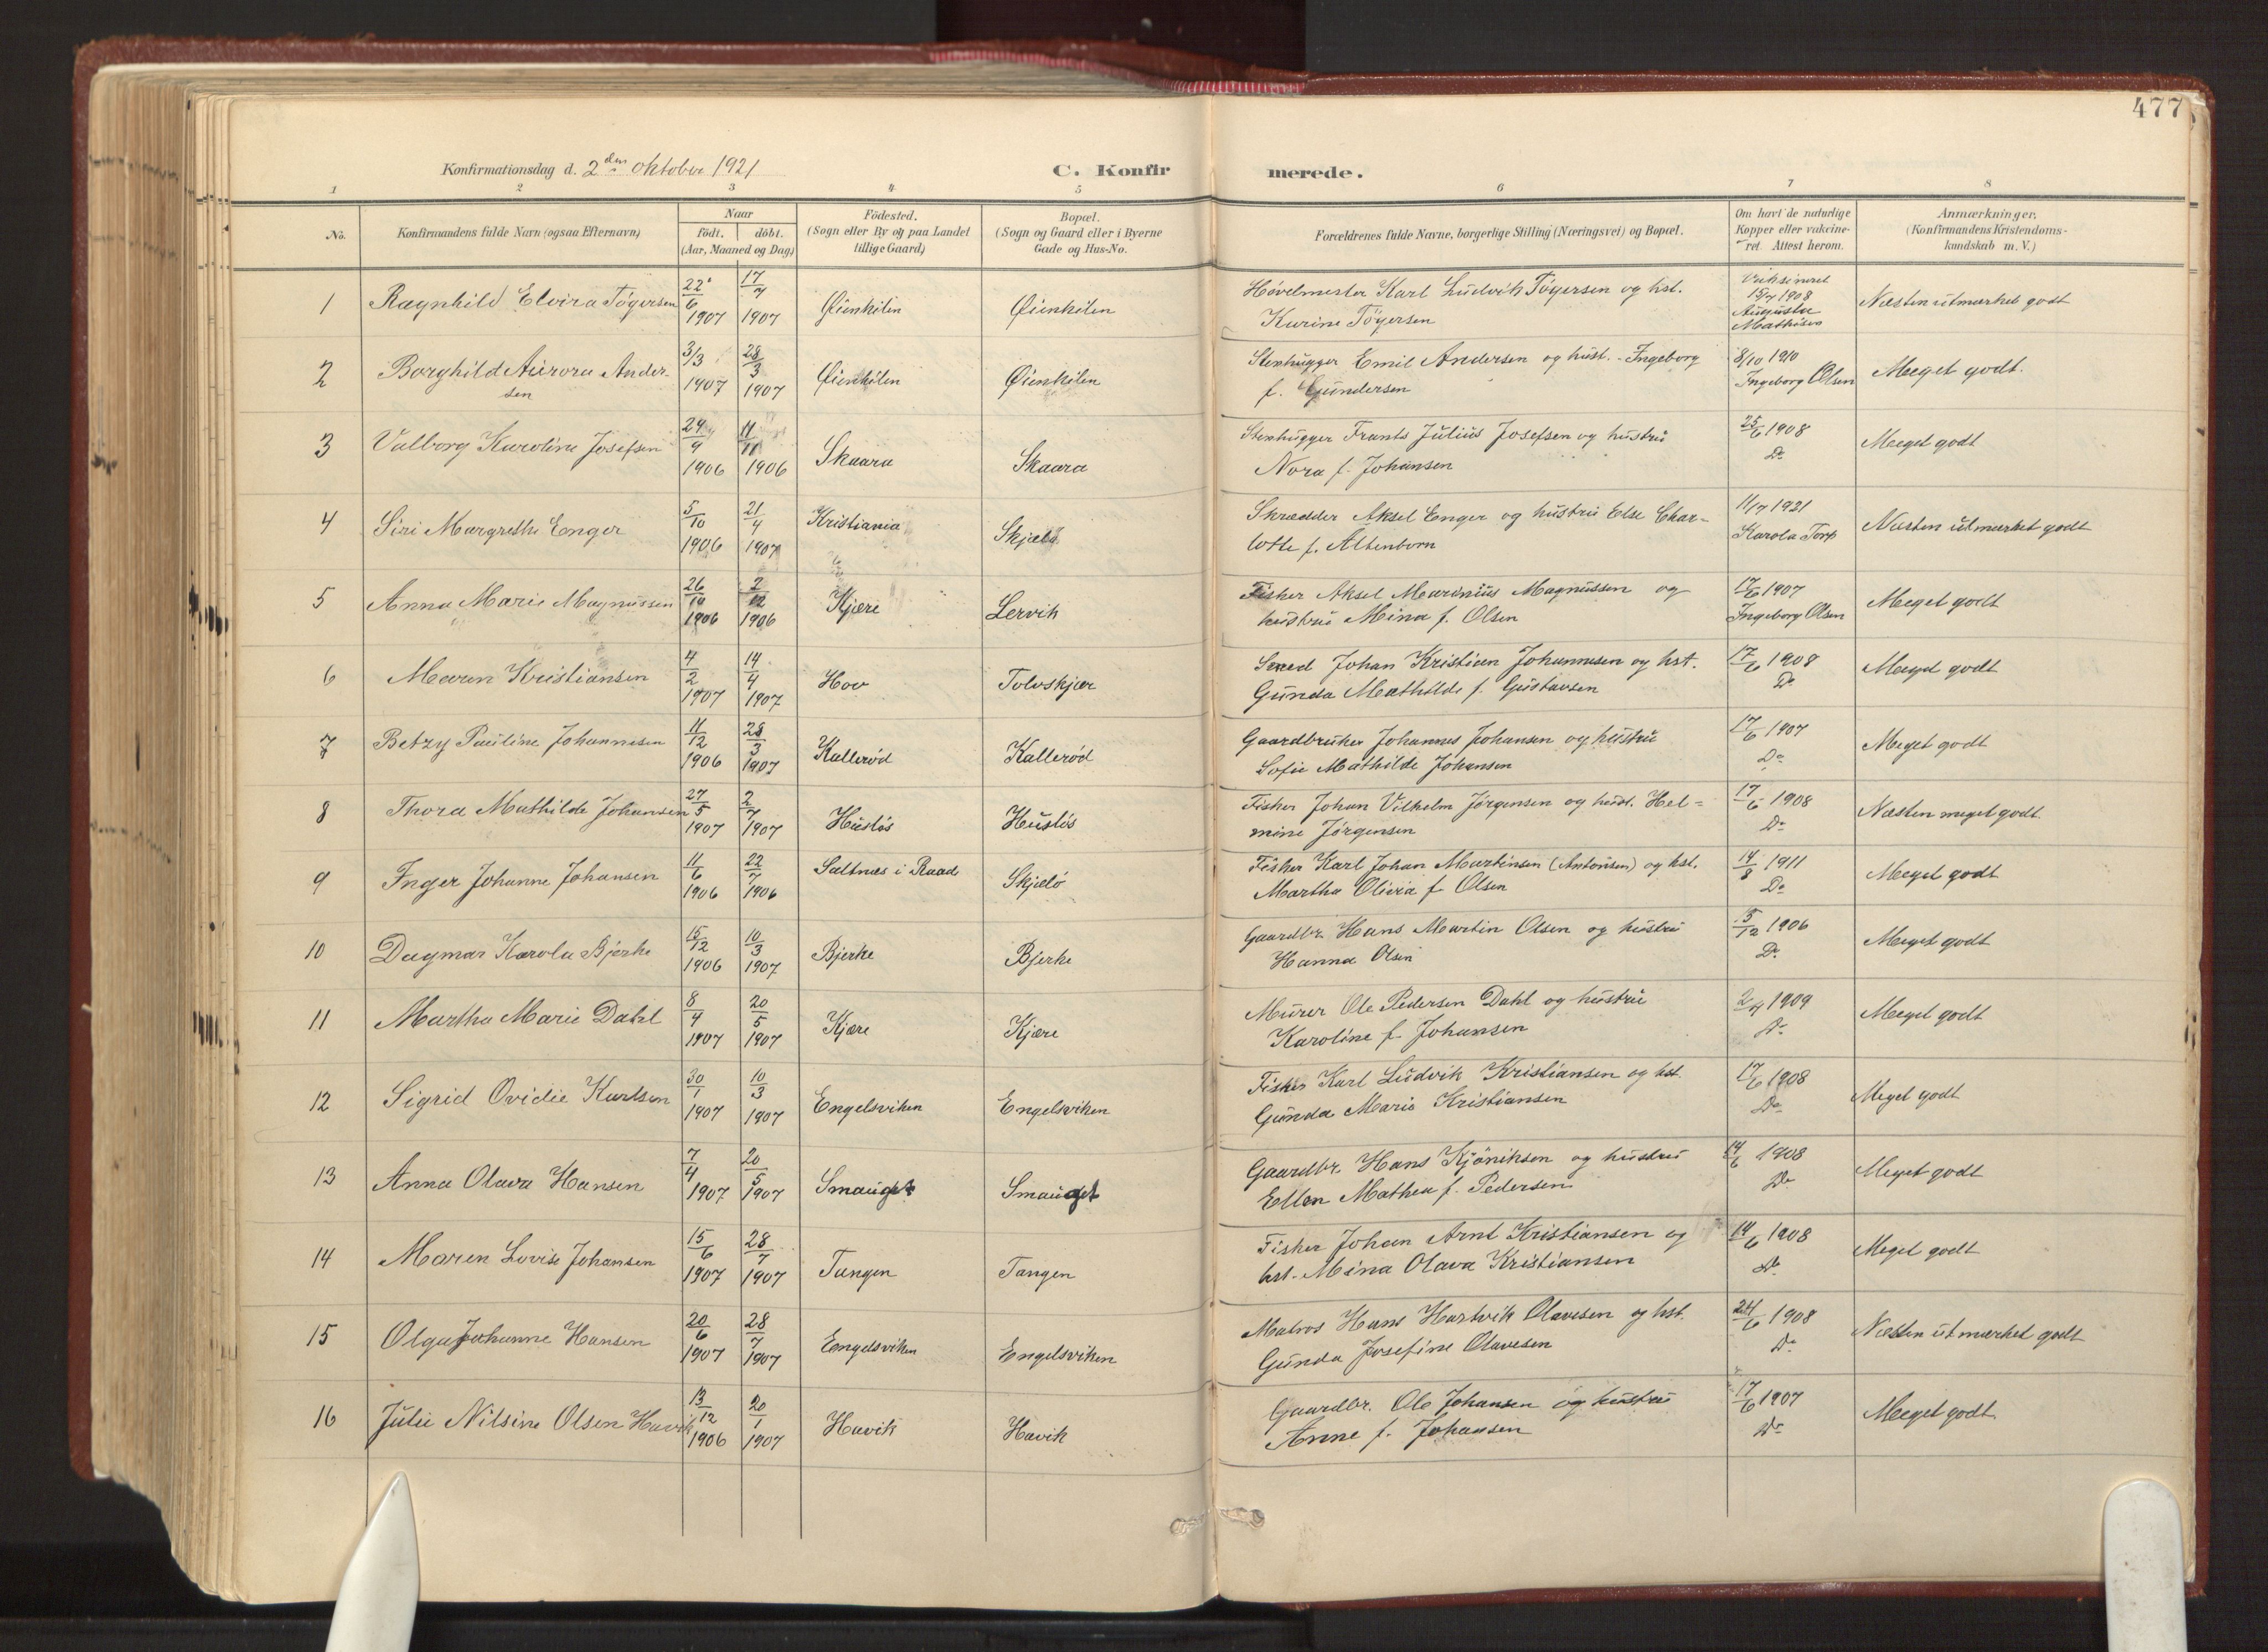 477
Konfirmationsdag d. 2den oktober 1921
C. Konfirmerede.
1 2 3 4 5 6 7 8
No. | Konfirmandens fulde Navn (ogsaa Efternavn) | Naar födt. | döbt. (Aar, Maaned og Dag) | Födested. (Sogn eller By og paa Landet tillige Gaard) | Bopæl. (Sogn og Gaard eller i Byerne Gade og Hus-No. | Forældrenes fulde Navne, borgerlige Stilling (Næringsvei) og Bopæl. | Om havt de naturlige Kopper eller vakcineret. Attest herom. | Anmærkninger. (Konfirmandens Kristendomskundskab m. V.)
1 Ragnhild Elvira Tögersen 22/6 1907 17/7 1907 Øienkilen Øienkilen Hövelmester Karl Ludvik Tögersen og hst. Karine Tögersen Vaksineret 15/7 1908 Augusta Mathisen Næsten utmærket godt
2 Borghild Aurora Andersen 3/3 1907 28/3 1907 Øienkilen Øienkilen Stenhugger Emil Andersen og hust. Ingeborg f. Gundersen 8/10 1910 Ingeborg Olsen Meget godt.
3 Valborg Karoline Josefsen 24/9 1906 11/11 1906 Skaara Skaara Stenhugger Frants Julius Josefsen og hustru Nora f. Johansen 25/6 1908 Do Meget godt
4 Siri Margrethe Enger 5/10 1906 21/4 1907 Kristiania Skjælø Skrædder Aksel Enger og hustru Else Charlotte f. Altenborn 11/7 1921 Karola Torp Næsten utmærket godt
5 Anna Marie Magnussen 26/10 1906 2/12 1906 Kjære Lervik Fisker Aksel Marinius Magnussen og hustru Mina f. Olsen 17/6 1907 Ingeborg Olsen Meget godt
6 Maren Kristiansen 4/2 1907 14/4 1907 Hov Tolvskjær Smed Johan Kristian Johannesen og hst. Gunda Mathilde f. Gustavsen 17/6 1908 Do Meget godt
7 Betzy Pauline Johannesen 11/12 1906 28/3 1907 Kallerød Kallerød Gaardbruker Johannes Johansen og hustru Sofie Mathilde Johansen 17/6 1907 Do Meget godt
8 Thora Mathilde Johansen 27/5 1907 2/7 1907 Husløs Husløs Fisker Johan Vilhelm Jørgensen og hust. Helmine Jørgensen 17/6 1908 Do Næsten meget godt.
9 Inger Johanne Johansen 11/6 1906 22/7 1906 Saltnæs i Raade Skjælø Fisker Karl Johan Martinsen (Antonsen) og hst. Martha Olivia f Olsen 14/8 1911 Do Meget godt
10 Dagmar Karola Bjerke 15/12 1906 10/3 1907 Bjerke Bjerke Gaardbr. Hans Martin Olsen og hustru Hanna Olsen 5/12 1906 Do Meget godt
11 Martha Marie Dahl 8/4 1907 20/5 1907 Kjære Kjære Murer Ole Pedersen Dahl og hustru Karoline f. Johansen 2/7 1909 Do Meget godt
12 Sigrid Ovidie Karlsen 30/1 1907 10/3 1907 Engelsviken Engelsviken Fisker Karl Ludvik Kristiansen og hst. Gunda Marie Kristiansen 17/6 1908 Do Meget godt
13 Anna Olava Hansen 7/4 1907 20/5 1907 Smauget Smauget Gaardbr. Hans Kjöniksen og hustru Ellen Mathea f. Pedersen 14/6 1908 Do Meget godt
14 Maren Lovise Johansen 15/6 1907 28/7 1907 Tangen Tangen Fisker Johan Arnt Kristiansen og hst. Mina Olava Kristiansen 14/6 1908 Do Meget godt
15 Olga Johanne Hansen 20/6 1907 28/7 1907 Engelsviken Engelsviken Matros Hans Hartvik Olavesen og hst. Gunda Josefine Olavesen 24/6 1908 Do Næsten utmærket godt
16 Julie Nilsine Olsen Havik 13/12 1906 20/1 1907 Havik Havik Gaardbr. Ole Johansen og hustru Anne f. Johansen 17/6 1907 Do Meget godt